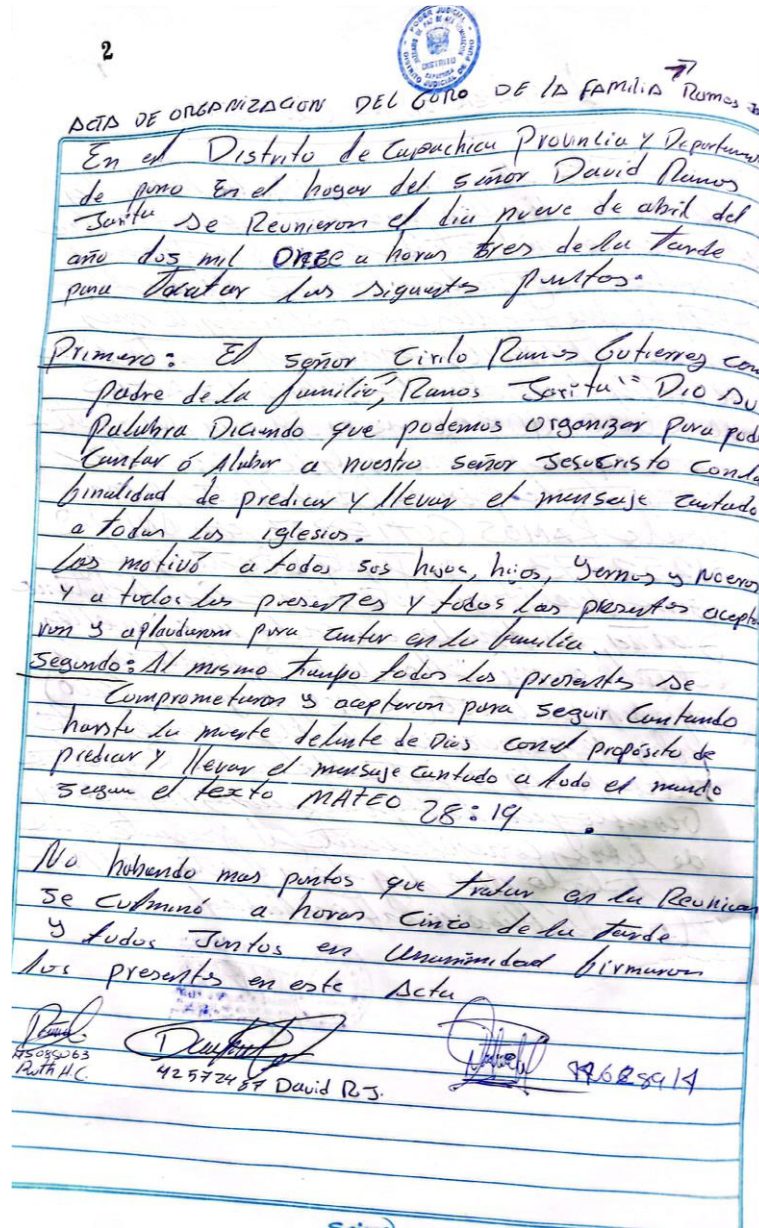 2
PODER JUDICIAL
DISTRITO JUDICIAL DE PUNO
ACTA DE ORGANIZACION DEL CORO DE LA FAMILIA Ramos
En el Distrito de Capachica Provincia y Departamen
de puno En el hogar del señor David Ramos
Jarita se Reunieron el dia nueve de abril del
año dos mil ONCE a horas tres de la Tarde
para Tratar los siguentes puntos.
Primero: El señor Cirilo Ramos Gutierrez com
padre de la familia, Ramos Jarita" Dio su
Palabra Diciendo que podemos organizar para pode
Cantar ó Alabar a nuestro señor Jesucristo Con la
finalidad de predicar y llevar el mensaje cantado
a todas las iglesias.
Los motivó a todos sus hijos, Yernos y Nueros
y a todos los presentes y todos los presentes acepta
ron y aplaudieron para cantar en la familia.
Segundo: Al mismo tiempo todos los presentes se
Comprometieron y aceptaron para seguir Cantando
hasta la muerte delante de Dios con el propósito de
predicar y llevar el mensaje cantado a todo el mundo
Segun el texto MATEO 28:19.
No habendo mas puntos que tratar en la Reunion
se culminó a horas cinco de la tarde
y todos Juntos en Unanimidad firmaron
los presentes en este Acta
Ruth H.C.
42572487 David R.J.